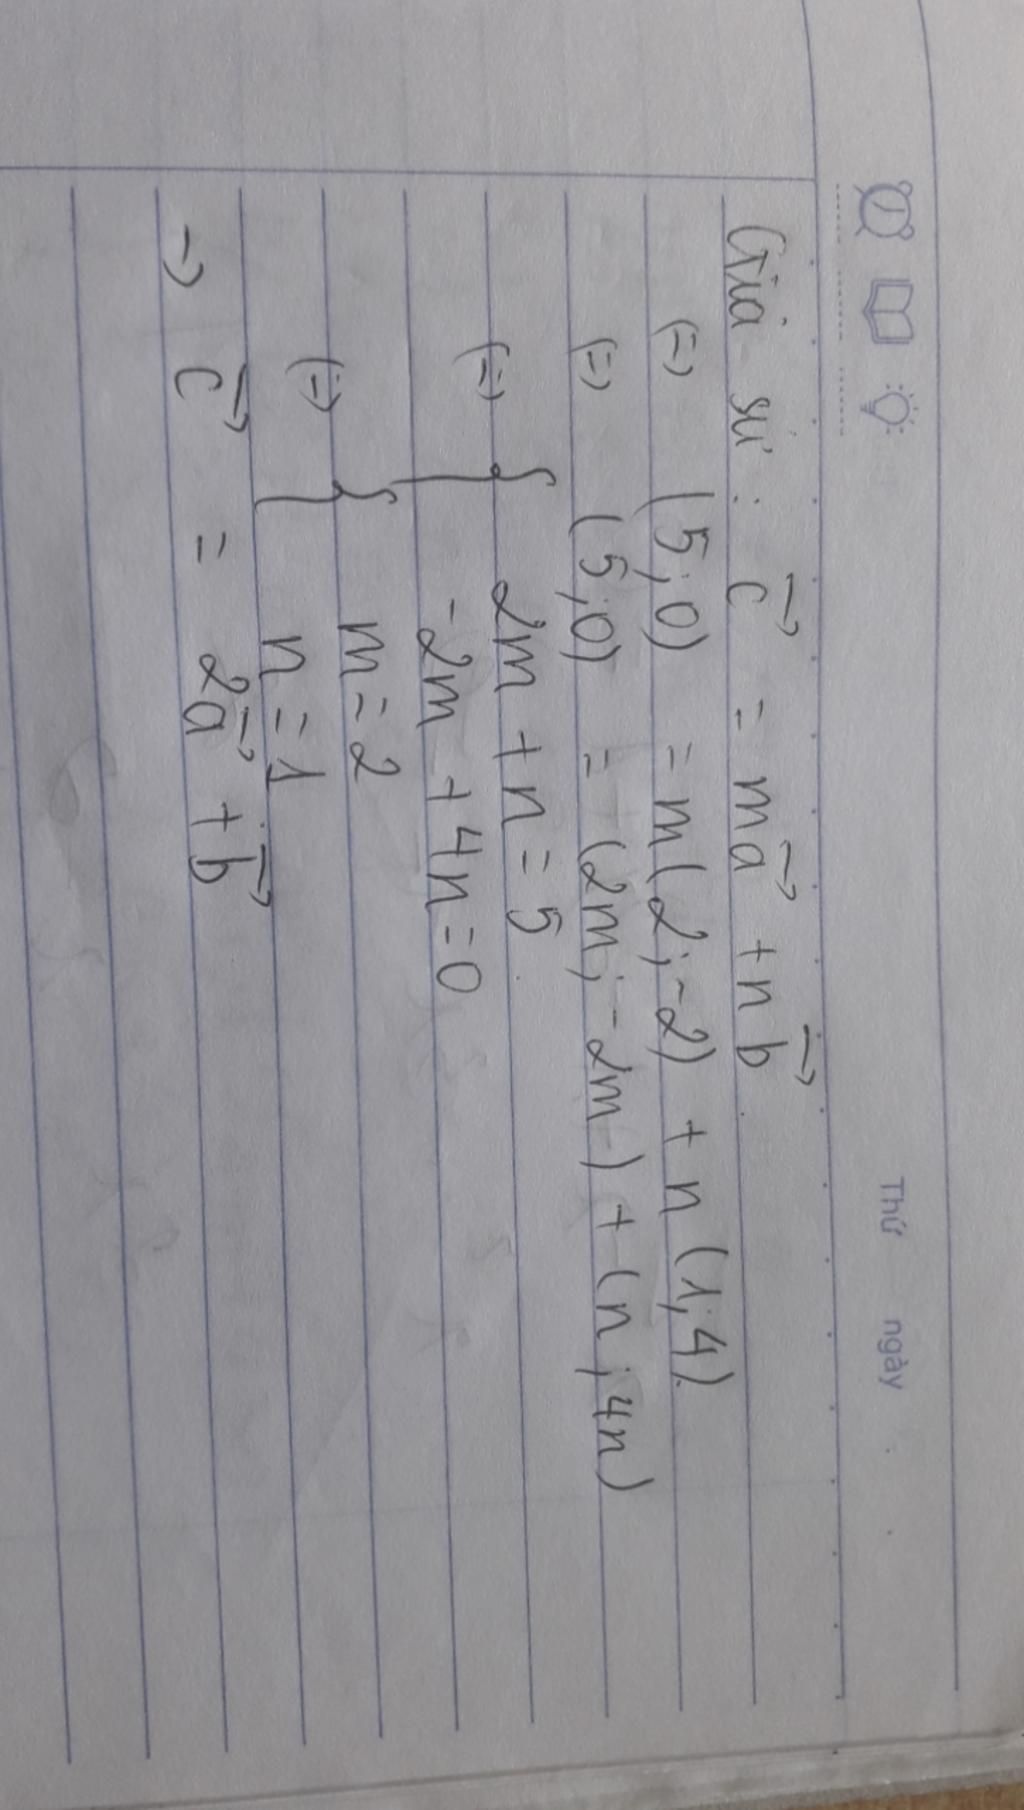 Thứ ngày
Giả sử : c⃗ = ma⃗ + nb⃗
(=) (5;0) = m(2;-2) + n(1;4).
(=) (5;0) = (2m;-2m) + (n;4n)
(=) { 2m + n = 5
-2m + 4n = 0
(=) { m = 2
n = 1
→ c⃗ = 2a⃗ + b⃗